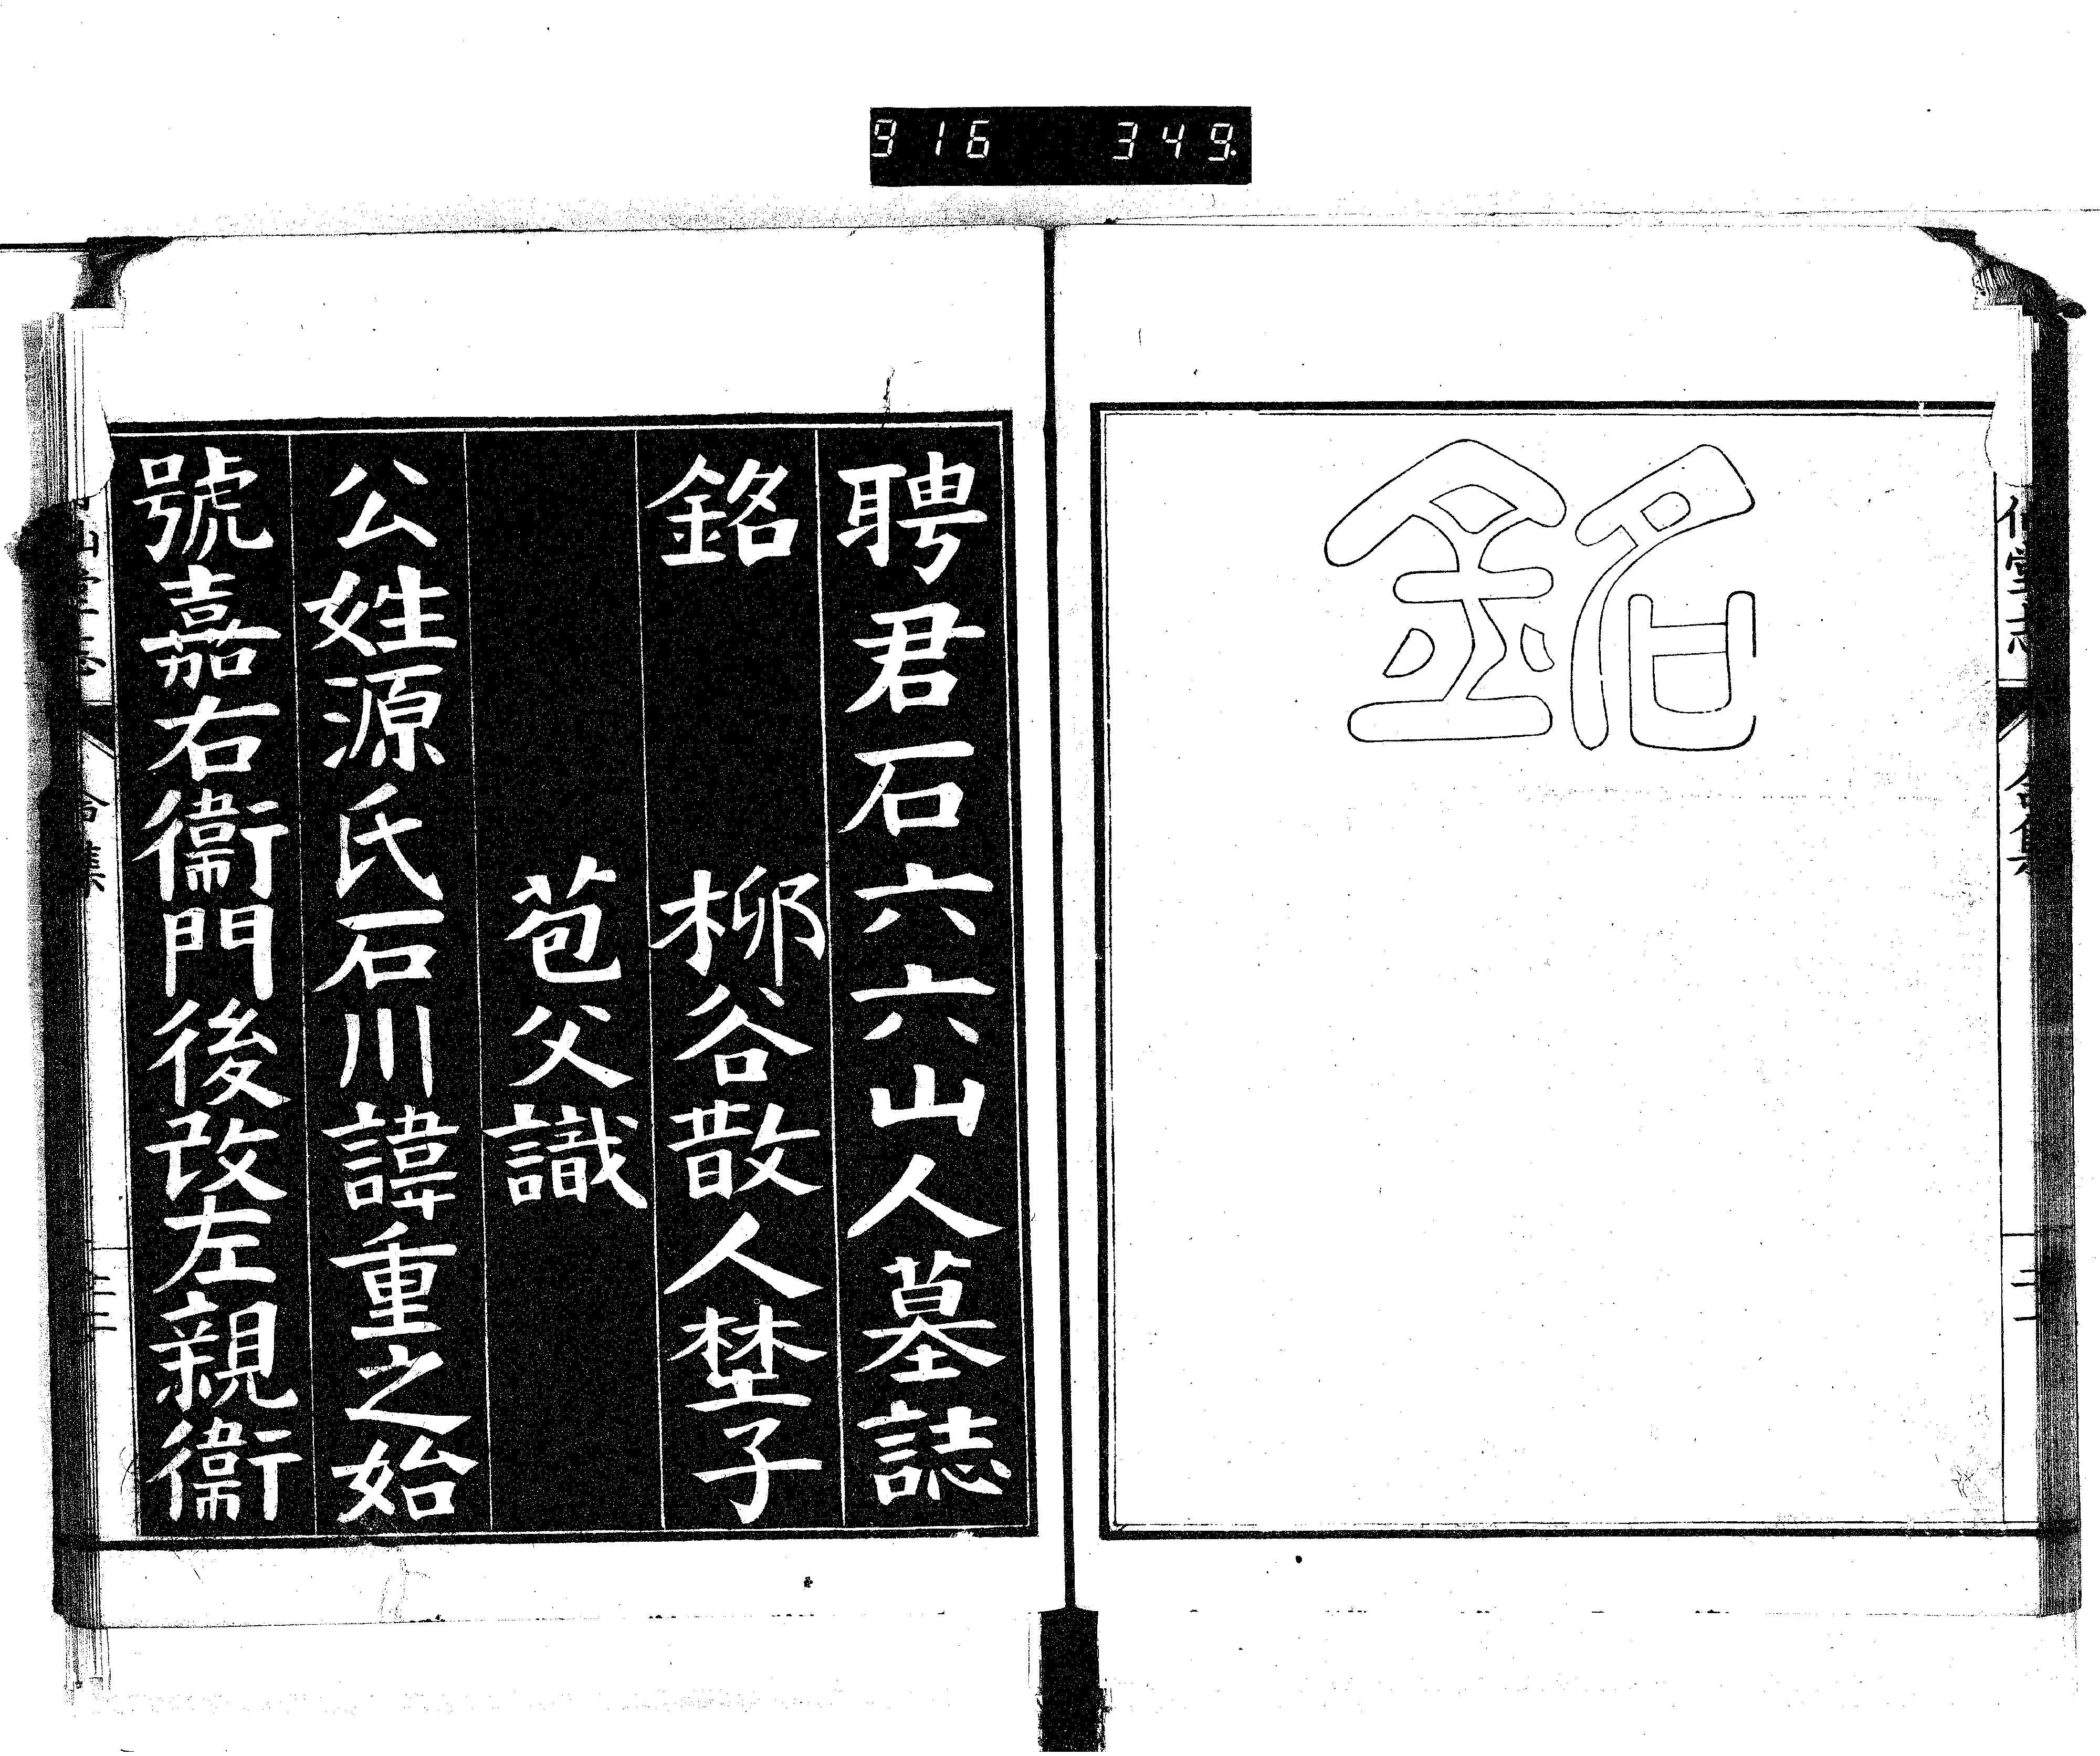 916 349
銘
聘君石六六山人墓誌
銘 柳谷散人埜子
苞父識
公姓源氏石川諱重之始
號嘉右衞門後改左親衞